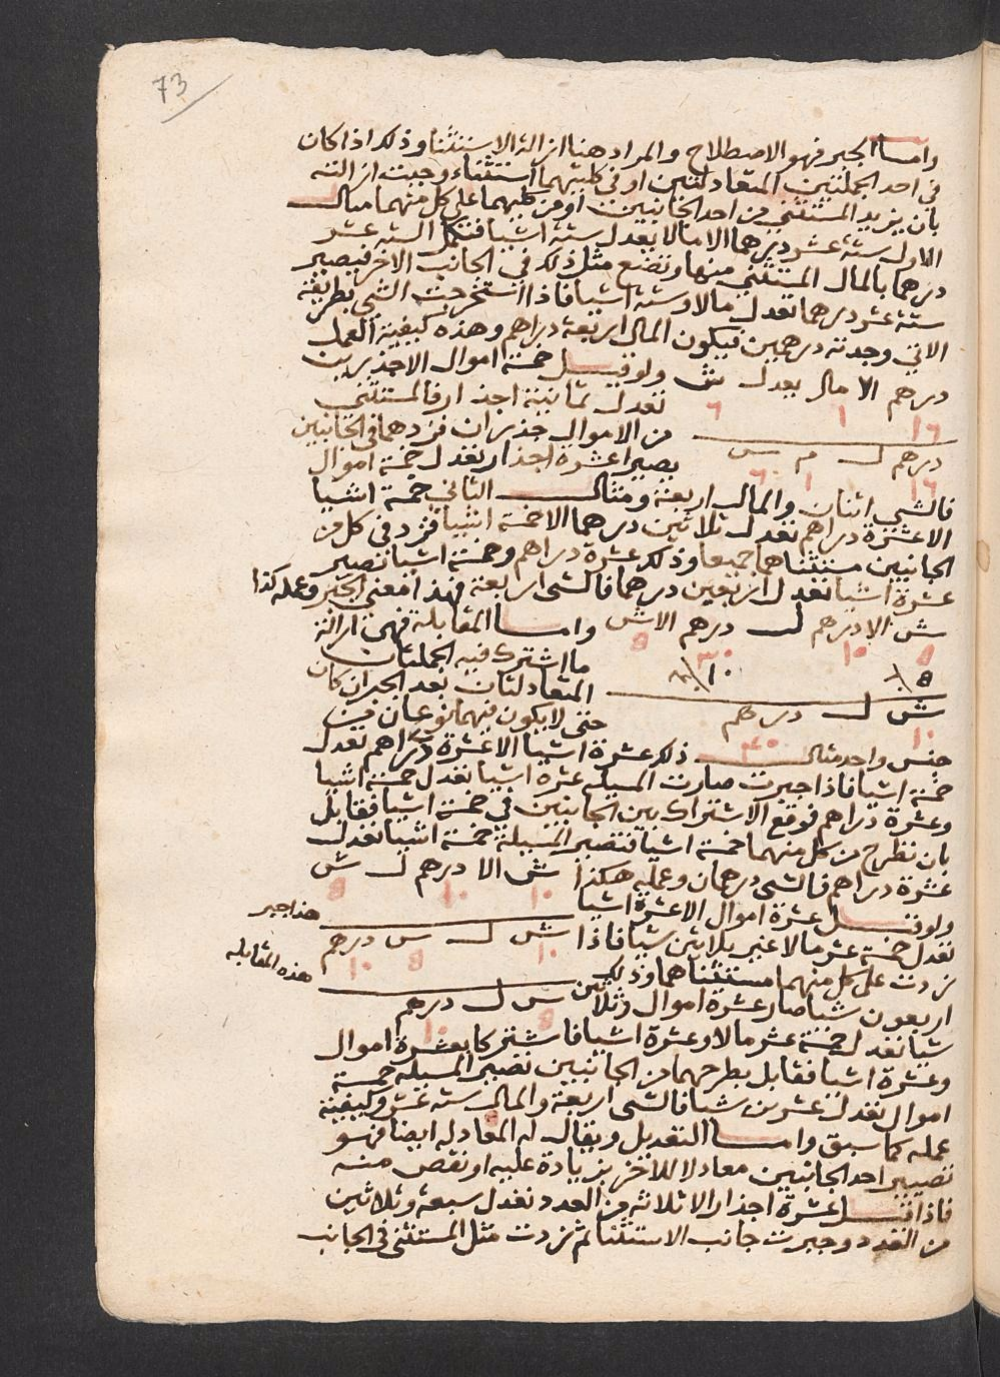 73
واما الجبر فهو الاصطلاح والمراد هنا ازالة الاستثنا وذلك اذا كان
في احد الجملتين المتعادلتين او في كلتيهما استثناء وجبت ازالته
بان يزيد المستثنى من احد الجانبين او من كليهما على كل منهما مثال
الاول ستة عشر درهما الا مالا يعدل ستة اشيا فتكمل الستة عشر
درهما بالمال المستثنى منها وتضع مثل ذلك في الجانب الاخر فيصير
ستة عشر درهما تعدل مالا وستة اشيا فاذا استخرجت الشي بطريقة
الاتي وجدته درهمين فيكون المال اربعة دراهم وهذه كيفية العمل
درهم الا مال يعدل ش ولو قيل خمسة اموال الا جذرين
١٦ ١ ٦ تعدل ثمانية اجذار فالمستثنى
من الاموال جذران فزدهما في الجانبين
درهم ل م س يصير عشرة اجذار تعدل خمسة اموال
١٦ ١ ٦
فالشي اثنان والمال اربعة ومثال الثاني خمسة اشيا
الا عشرة دراهم تعدل ثلاثين درهما الا خمسة اشيا فزد في كل من
الجانبين مستثناهما جميعا وذلك عشرة دراهم وخمسة اشيا تصير
عشرة اشيا تعدل اربعين درهما فالشي اربعة فهذا معنى الجبر وعمله كذا
ش الا درهم ل درهم الا ش واما المقابلة فهي ازالة
٥ ١٠ ٣٠ ٥ ما اشترك فيه الجملتان
المتعادلتان بعد الجبر ان كان
ش ل درهم حتى لا يكون فيهما نوعان من
١٠ ٤٠
جنس واحد مثال ذلك عشرة اشيا الا عشرة دراهم تعدل
خمسة اشيا فاذا جبرت صارت المسيلة عشرة اشيا تعدل خمسة اشيا
وعشرة دراهم فوقع الاشتراك بين الجانبين في خمسة اشيا فقابل
بان تطرح من كل منهما خمسة اشيا فتصير المسيلة خمسة اشيا تعدل
عشرة دراهم فالشي درهمان وعمله هكذا ش الا درهم ل ش
١٠ ١٠ ٥
ولو قيل عشرة اموال الا عشرة اشيا هذا جبر
تعدل خمسة عشر مالا غير ثلاثين شيا فاذا ش ل س درهم
١٠ ٥ ١٠
زدت على كل منهما مستثناهما وذلك هذه المقابله
اربعون شيا صار عشرة اموال وثلاثين س ل درهم
٥ ١٠
شيا تعدل خمسة عشر مالا وعشرة اشيا فاشتركا بعشرة اموال
وعشرة اشيا فقابل بطرحهما من الجانبين تصير المسيله خمسة
اموال تعدل عشرين شيا فالشي اربعة والمال ستة عشر وكيفية
عمله كما سبق واما التعديل ويقال له المعادله ايضا فهو
تصيير احد الجانبين معادلا للاخر بزيادة عليه او نقص منه
فاذا قيل عشرة اجذار الا ثلاثة من العدد تعدل سبعة وثلاثين
من العدد وجبرت جانب الاستثنا ثم زدت مثل المستثنى في الجانب